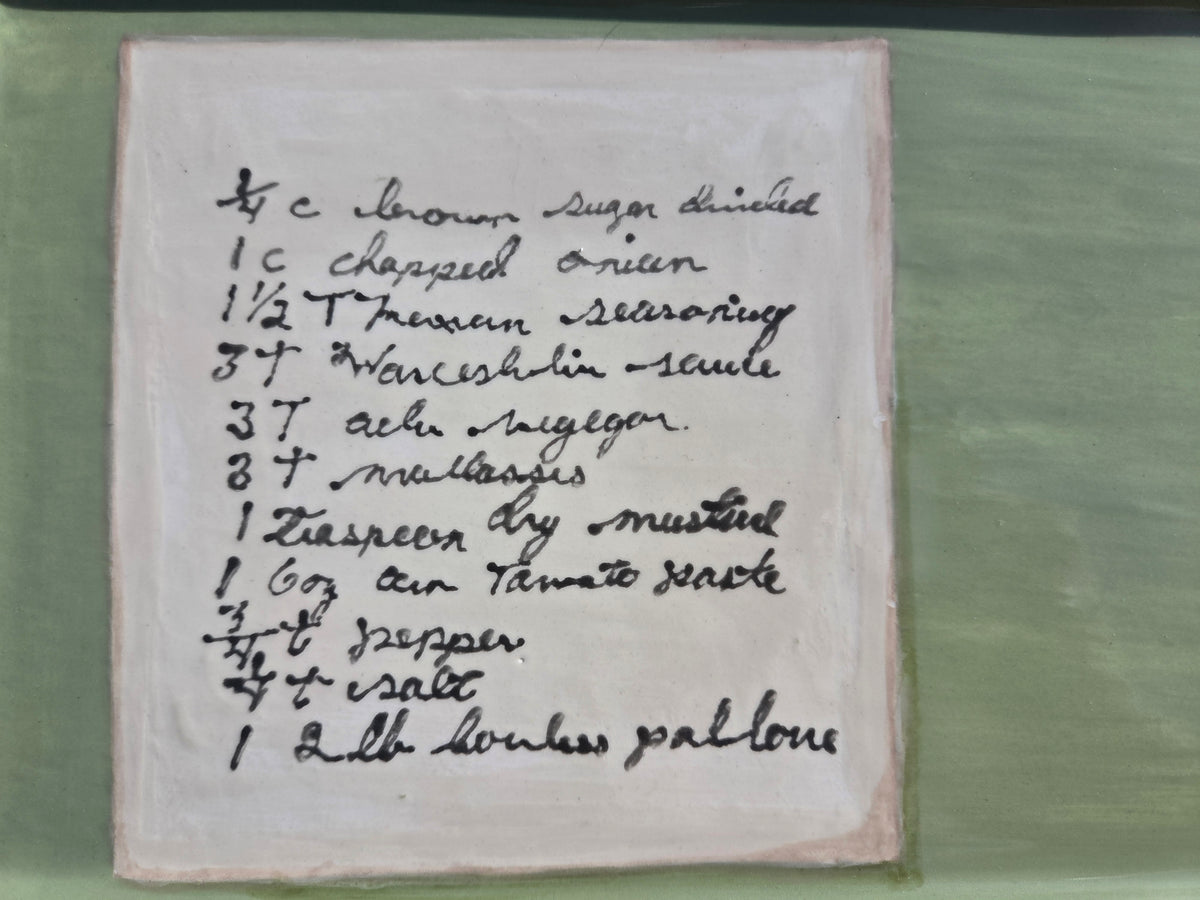 ¼ c brown sugar divided
1 c chopped onion
1 1/2 T Mexican seasoning
3 T Worcestshir sauce
3 T
3 T mollasses
1 Teaspoon dry mustard
1 6oz can Tamato paste
3/4 t pepper
t salt
1 2 lb bonless